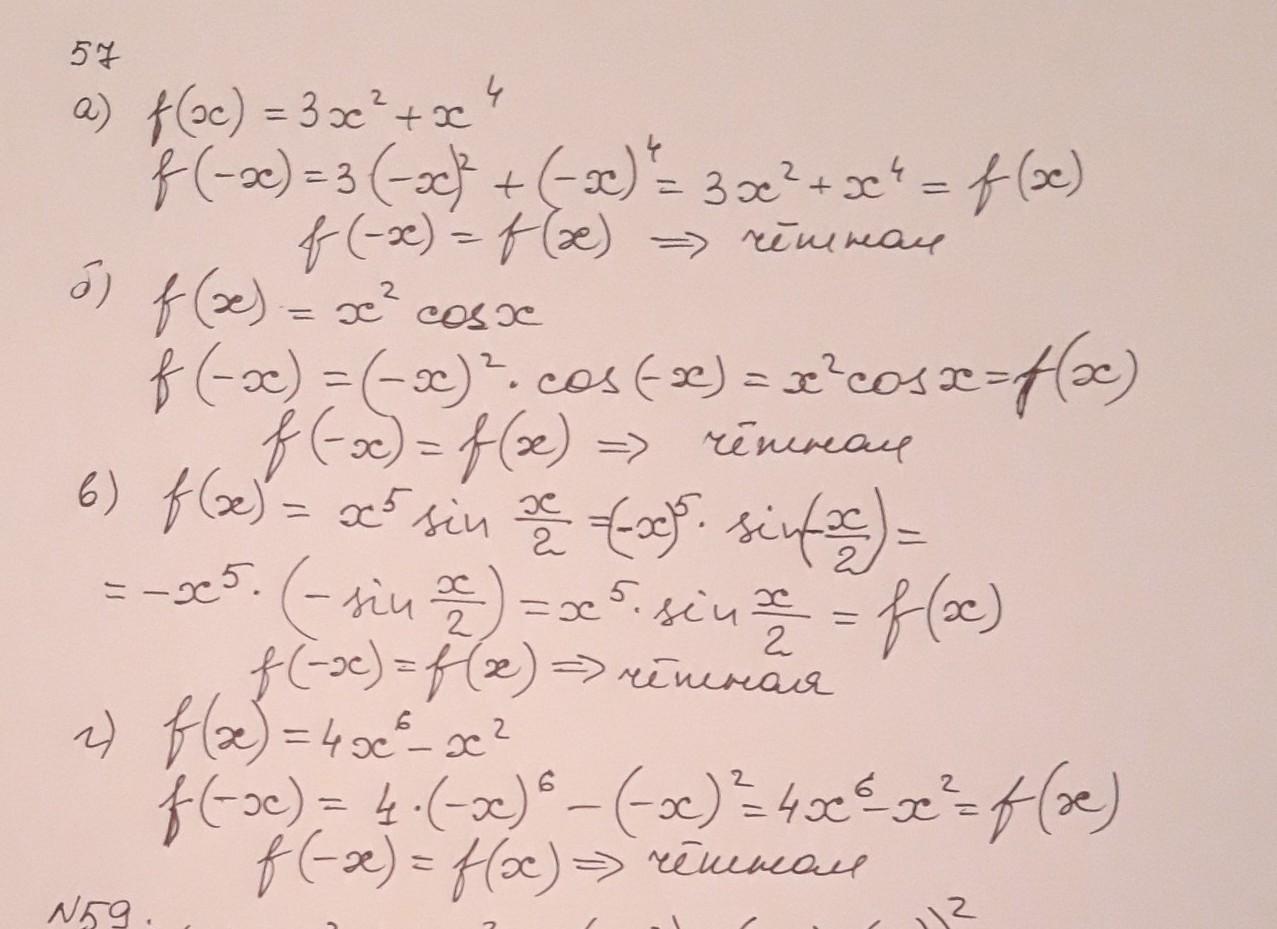 57
а) f(x) = 3x² + x⁴
f(-x) = 3(-x)² + (-x)⁴ = 3x² + x⁴ = f(x)
f(-x) = f(x) ⇒ чётная
б) f(x) = x² cosx
f(-x) = (-x)² · cos(-x) = x² cosx = f(x)
f(-x) = f(x) ⇒ чётная
в) f(x) = x⁵ sin x/2 = (-x)⁵ · sin(-x/2) =
= -x⁵ · (- sin x/2) = x⁵ · sin x/2 = f(x)
f(-x) = f(x) ⇒ чётная
г) f(x) = 4x⁶ - x²
f(-x) = 4·(-x)⁶ - (-x)² = 4x⁶ - x² = f(x)
f(-x) = f(x) ⇒ чётная
N59.